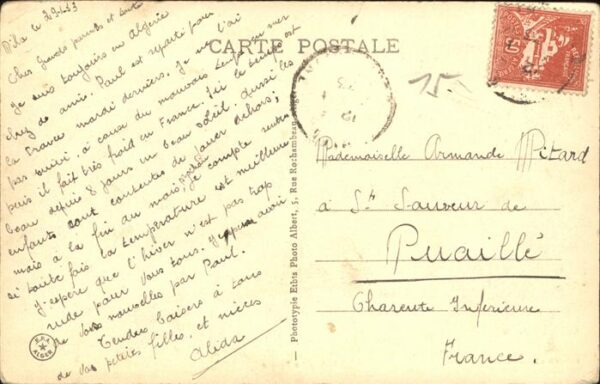 CARTE POSTALE
Blida le 29.1.33
Chers grands parents et tante
Je suis toujours en Algérie
chez des amis. Paul est reparti pour
la France mardi derniers. Je ne l'ai
pas suivi à cause du mauvais temps en mer
puis il fait très froid en France. Ici le temps est
beau depuis 8 jours un beau soleil. Aussi les
enfants sont contentes de jouer dehors;
mais à la fin du mois prochain je compte rentrer
si toute fois la température est meilleure
J'espère que l'hiver n'est pas trop
rude pour vous tous. J'espère avoir
de vos nouvelles par Paul.
Tendres baisers à tous
de vos petites filles, et nièces
Alida
E.P.A.
ALGER
Phototypie Etbts Photo Albert, 5, Rue Rochambeau, Alger
15.
1F
Mademoiselle Armande Mitard
à St Sauveur de
Puaillé
Charente Inférieure
France.